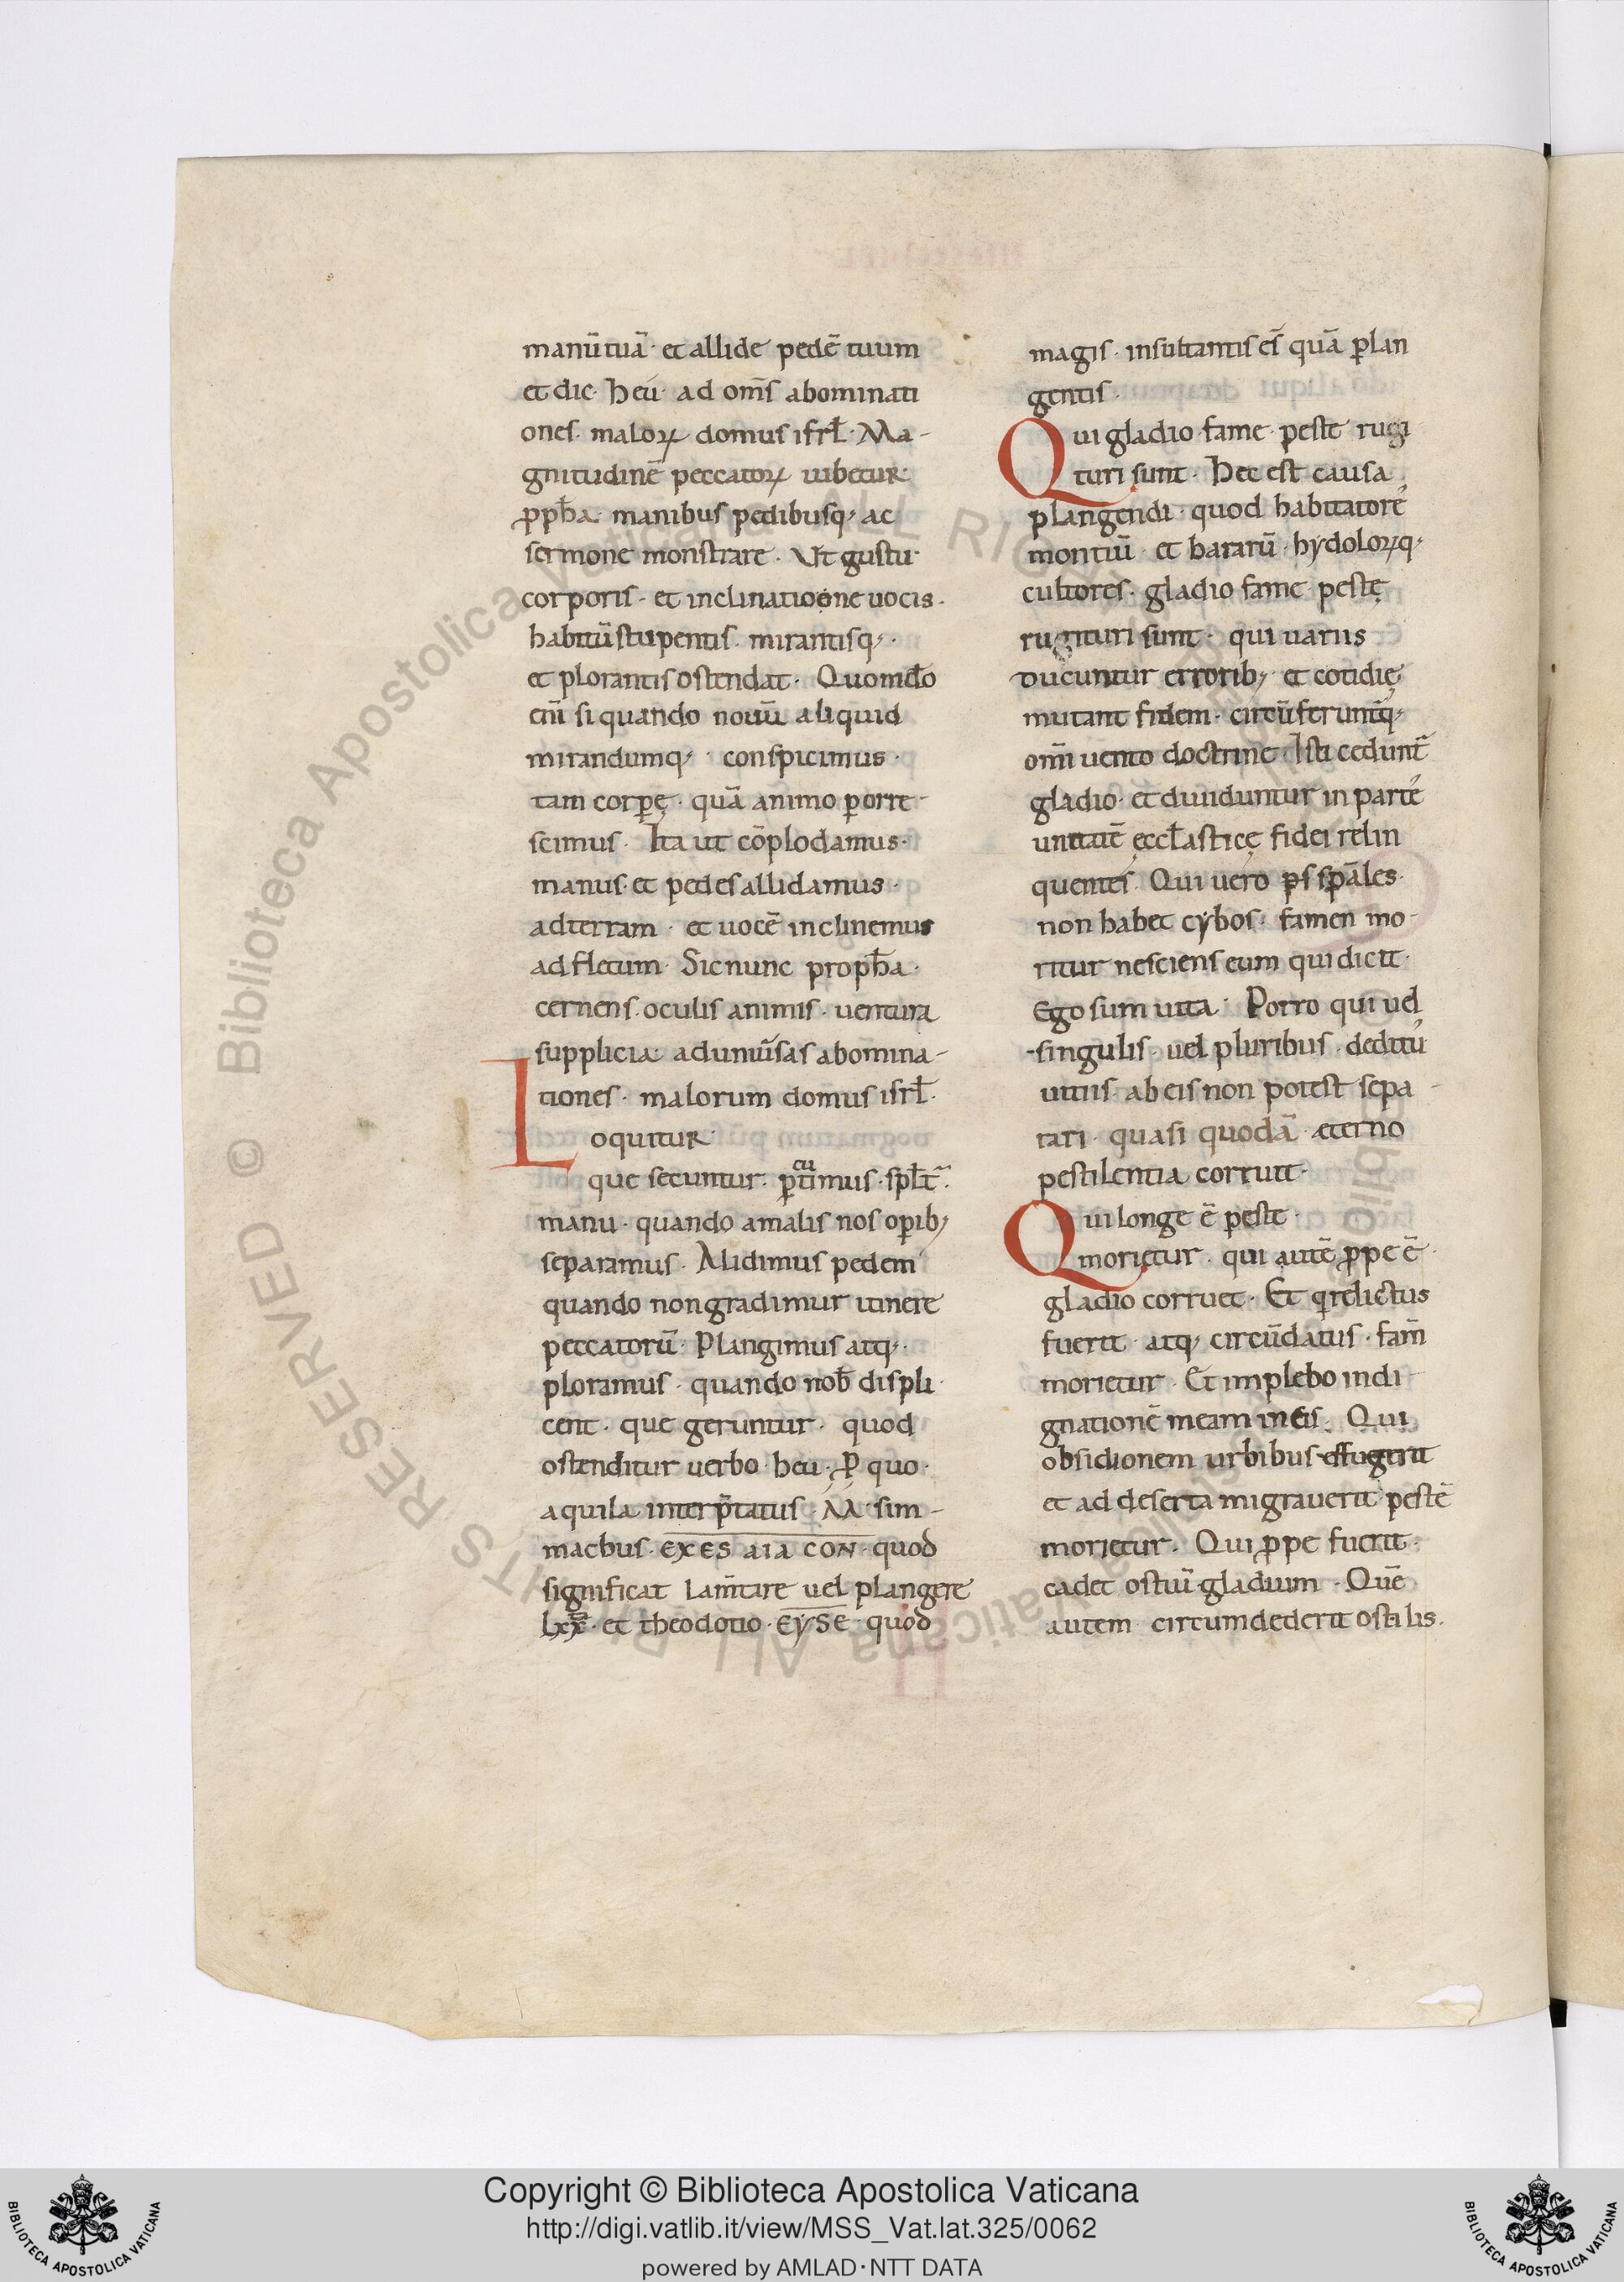 manū tuā · et allide pedē tuum
et dic · Heu · ad om̄s abominati
ones · maloꝝ domus isrł · Ma-
gnitudinē peccatoꝝ iubetur
ꝓph̄a · manibus pedibusq; ac
sermone monstrare · Ut gustu
corporis · et inclinatioone uocis ·
habitū stupentis · mirantisq; ·
et plorantis ostendat · Quomdo
eni̅ si quando nouū aliquid
mirandumq; · conspicimus ·
tam corꝑę · quā animo ꝑorre-
scimus · Ita ut cōplodamus ·
manus · et pedes allidamus ·
ad terram · et uocē inclinemus
ad fletum · Sic nunc proph̄a ·
cernens · oculis animis · uentura
supplicia ad uniūsas abomina-
tiones · malorum domus isrł ·
Loquitur
que secuntur · ꝑcutimus · spłr̄ ·
manu · quando a malis nos oꝑib;
separamus · Alidimus pedem
quando non gradimur itinere
peccatorū · Plangimus atq; ·
ploramus · quando nob̄ displi
cent · que geruntur · quod
ostenditur uerbo · heu · ꝓ quo ·
aquila interp̄tatus · AA · sim-
machus · EXES AIA CON · quod
significat lam̄tare uel plangere
lxx · et theodotio · EYSE · quod
magis · insultantis eſ̄ quā plan
gentis ·
Qui gladio · fame · peste rugi
turi sunt · Hec est causa
plangendi · quod habitatorē
montiū et bararū · hydoloꝝq;
cultores · gladio fame pestę
rugituri sunt · qui uariis
ducuntur errorib; et cotidię
mutant fidem · circūferuntq;
om̄i uento doctrine · Isti cedunt̄
gladio · et diuiduntur in partē
unitatē ęccłasticę fidei relin
quentes · Qui uero ps sp̄ales ·
non habet cybos · famen mo-
ritur nesciens eum qui dicit ·
Ego sum uita · Porro qui uel
singulis · uel pluribus · deditū
uitiis · ab eis non potest sepa-
rari · quasi quodā æterno
pestilentia corruit ·
Qui longe ē peste ·
morietur · qui autē ꝓpe ē ·
gladio corruet · Et q relictus
fuerit · atq; circūdatus · fam̄
morietur · Et implebo indi-
gnationē meam in eis · Qui
obsidionem urbibus effugerit
et ad deserta migrauerit pestē
morietur · Qui ꝓpe fuerit ·
cadet ostiū gladium · Quē
autem circumdederit ostilis ·
Copyright © Biblioteca Apostolica Vaticana
http://digi.vatlib.it/view/MSS_Vat.lat.325/0062
powered by AMLAD·NTT DATA
BIBLIOTECA APOSTOLICA VATICANA
BIBLIOTECA APOSTOLICA VATICANA